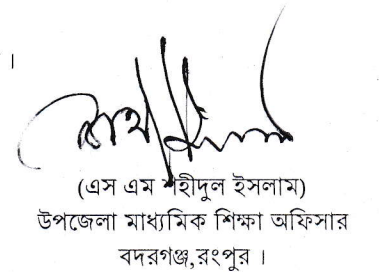 (এস এম শহীদুল ইসলাম)
উপজেলা মাধ্যমিক শিক্ষা অফিসার
বদরগঞ্জ,রংপুর ।